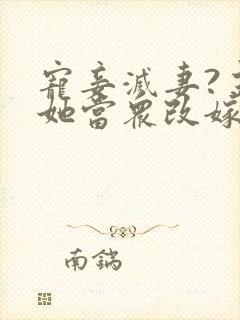 寵妾滅妻?
她當眾改嫁
南鍋